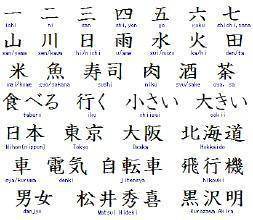 一 二 三 四 五 六 七
ichi ni san shi,yon go roku
山 川 日 雨 水 火 田
sen/kawa hi/nichi u/ame sui/mizu ka/hi den/ta
米 魚 寿司 肉 酒 茶
mai/kome gyo/sakana sushi niku syu/sake
食べる 行く 小さい 大きい
taberu iku ookii
日本 東京 大阪 北海道
Nihon(nippon) Tokyo Osaka Hokkaido
車 電気 自転車 飛行機
sya/kuruma denki jitensya hikouki
男女 松井秀喜 黒沢明
danjyo Matsui Hideki Kurozawa Akira